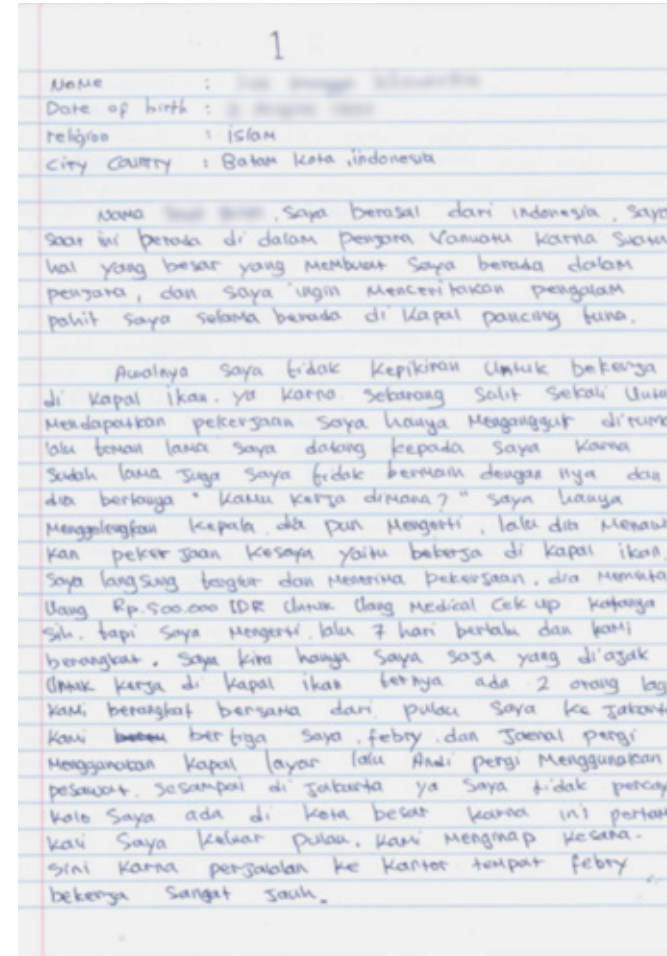 1
Name :
Date of birth :
religion : islam
City Country : Batam kota, indonesia
Nama , saya berasal dari indonesia, saya
saat ini berada di dalam penjara Vanuatu karna suatu
hal yang besar yang membuat saya berada dalam
penjara, dan saya ingin menceritakan pengalam
pahit saya selama berada di kapal pancing tuna.
Awalnya saya tidak kepikiran untuk bekerja
di kapal ikan. ya karna sekarang sulit sekali untu
Mendapatkan pekerjaan saya hanya Menganggur diruma
lalu teman lama saya datang kepada saya karna
sudah lama juga saya tidak bermain dengan nya dan
dia bertanya " kamu kerja dimana ? " saya hanya
Menggelengkan kepala. dia pun Mengerti, lalu dia Menawa
kan pekerjaan kesaya yaitu bekerja di kapal ikan.
saya langsung dan Menerima pekerjaan. dia Meminta
Uang Rp.500.000 IDR Untuk Uang Medical Cek up katanya
sih. tapi saya Mengerti. lalu 7 hari berlalu dan kami
berangkat. saya kira hanya saya saja yang di ajak
Untuk kerja di kapal ikan ternya ada 2 orang lag
kami berangkat bersama dari pulau saya ke jakarta
kami bertiga saya. febry. dan Jaenal pergi
Menggunakan kapal layar lalu Andi pergi Menggunakan
pesawat. sesampai di jakarta ya saya tidak percay
kalo saya ada di kota besar karna ini pertam
kali saya keluar pulau. kami Menginap kesana-
sini karna perjalalan ke kantor tempat febry
bekerja sangat jauh.